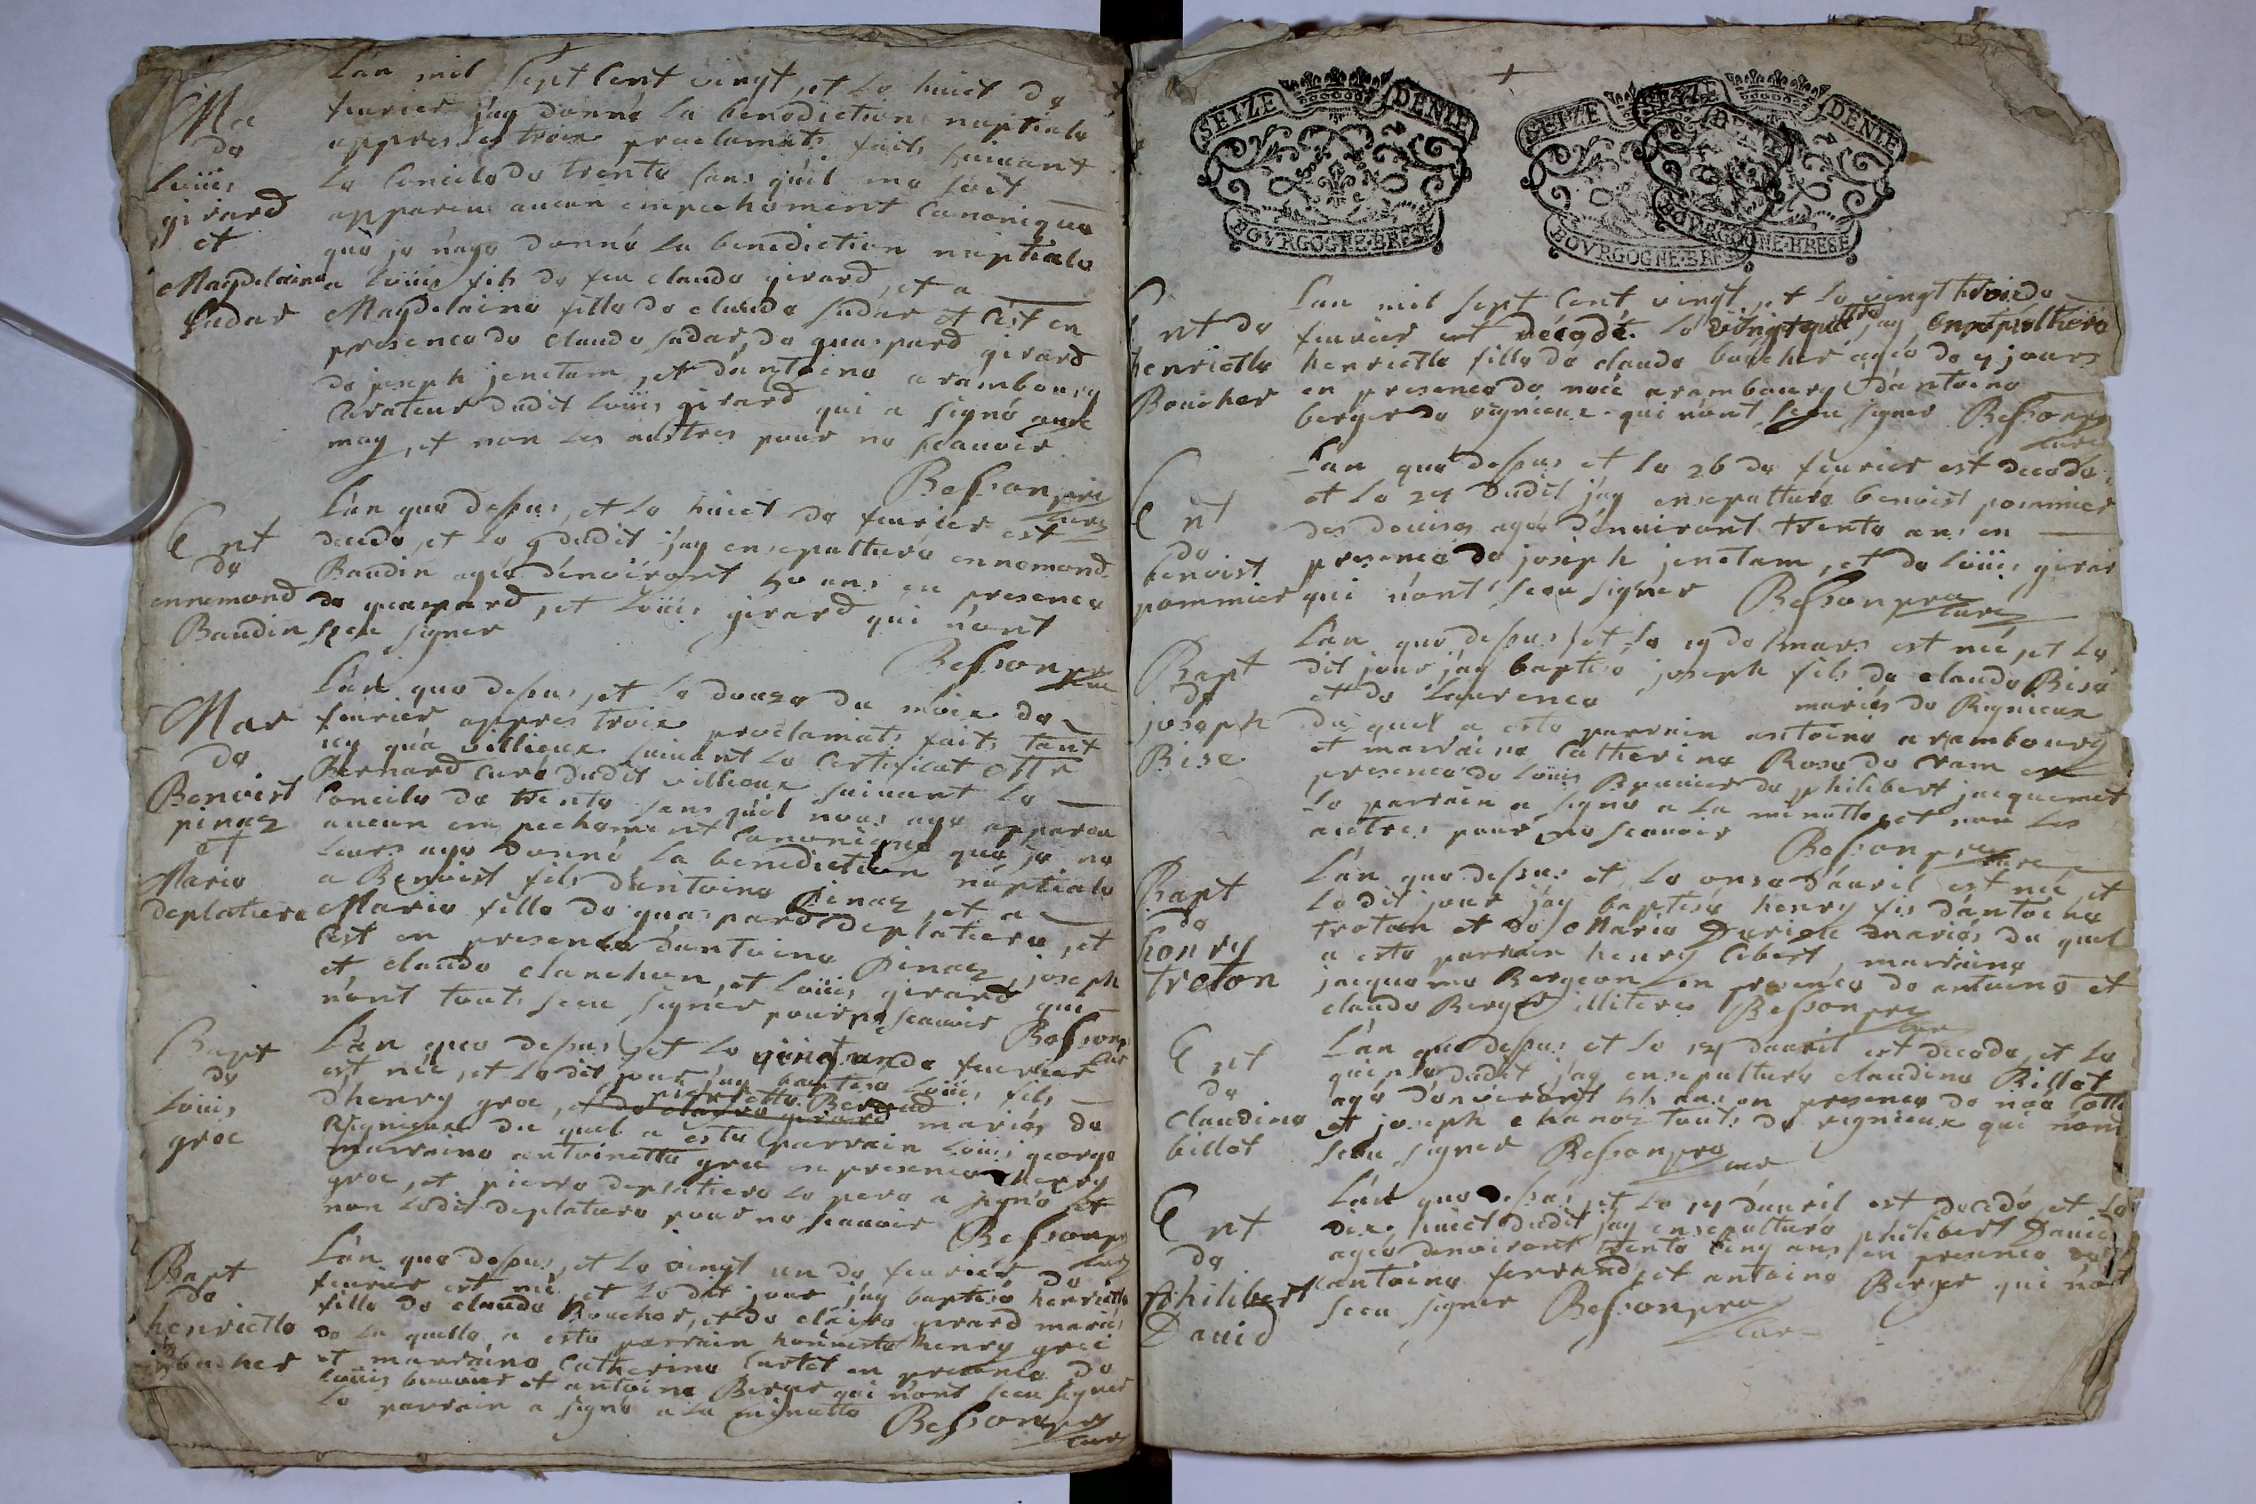 Ma
de
Louis
girard
et
Magdelaine
sadar
L'an mil sept cent vingt, et le huict de
feurier j'ay donné la benediction nuptiale
appres les trois proclamats faits suiuant
le Concile de trente sans qu'il me soit
appareu aucun empechement Canonique
que je n'aye donné la benediction nuptiale
a Louis fils de feu claude girard, et a
Magdelaine fille de claude sadar et C'est en
presence de claude sadar, de guaspard girard
de joseph jenetam, et d'antoine arambourg
Curateur dudit Louis girard qui a signé auec
moy, et non les austres pour ne scauoir
Besson pre
curé
Ent
de
ennemond
Baudin
L'an que dessus, et le huict de feurier est
decedé, et le 9 dudit j'ay ensepulturé ennemond
Baudin agé d'environt 50 ans en presence
de guaspard, et Louis girard qui n'ont
sceu signer
Besson pre
curé
Mar
de
Benoist
pinaz
et
Marie
deplatiere
L'an que dessus, et le douze du mois de
feurier appres trois proclamats faits tant
icy qu'a villieux suiuant le Certificat
Bernard Curé dudit villieux suiuant le
Concile de trente sans qu'il nous aye appareu
aucun empechement Canonique que je ne
leurs aye donné la benediction nuptiale
a Benoist fils d'antoine Pinaz, et a
Marie fille de guaspard deplatiere, et
C'est en presence d'antoine Pinaz, joseph
et claude clanchon, et Louis girard qui
n'ont touts sceu signer pour ne scauoir
Besson
Bapt
de
Louis
groc
L'an que dessus, et le vingt un de feurier
est née, et le dit jour j'ay baptisé Louis fils
pierrette Bernad
d'henry groc, et de claire girard mariés de
Rignieux du quel a esté parrain Louis george
marraine antoinette groc en presence d'henry
groc, et pierre deplatiere le pere a signé et
non ledit deplatiere pour ne scauoir
Besson pre
curé
Bapt
de
henriette
boucher
L'an que dessus, et le vingt un de feurier de
feurier est né, et le dit jour j'ay baptisé henriette
fille de claude Boucher, et de claire girard mariés
de la quelle a esté parrain honneste henry groc
et marraine Catherine Curtet en presence de
Louis bouuier et antoine Berger qui n'ont sceu signer
le parrain a signé a la minutte
Besson pre
curé
SEIZE DENIE
BOVRGOGNE·BRESE
SEIZE DENIE
BOVRGOGNE·BRESE
SEIZE DENIE
BOVRGOGNE·BRESE
Ent de
henriette
Boucher
L'an mil sept Cent vingt, et le vingt trois de
feurier est décedé. le j'ay ensepulturé
henriette fille de claude boucher agée de 9 jours
en presence de noée arambourg, d'antoine
berger de rignieux qui n'ont sceu signer Besson pre
curé
Ent
de
benoist
pommier
L'an que dessus et le 26 de feurier est decedé
et le 27 dudit j'ay ensepulturé benoist pommier
des agé d'enuiront trente ans en
presence de joseph jenetam, et de Louis girar
qui n'ont sceu signer Besson pre
curé
Bapt
de
joseph
Bise
L'an que dessus, et le 19 de mars est née, et le
dit jour j'ay baptisé joseph fils de claude Bise
et de Laurence mariés de Rignieux
du quel a esté parrain antoine arambourg
et marraine Catherine Rose de ram en
presence de Louis Bouuier de philibert jacquemet
le parrain a signé a la minutte, et non les
autres pour ne scauoir Besson pre
curé
Bapt
de
henry
treton
L'an que dessus et le onze d'auril est née et
le dit jour j'ay baptisé henry fis d'antoine
treton et de Marie mariés du quel
a esté parrain henry Cibert, marraine
jacquema Bergeon en presence de antoine et
claude Berger illiteres Besson pre
curé
Ent
de
claudine
billot
L'an que dessus et le 14 dauril est decedé, et le
quinze dudit j'ay ensepulturé claudine Billot
agé d'environt 55 ans en presence de noe
et joseph chanoz touts de rignieux qui n'ont
sceu signer Besson pre
curé
Ent
de
philibert
Dauid
L'an que dessus, et le 17 d'auril est decedé, et le
dix huict dudit j'ay ensepulturé philibert Dauid
agée denviront trente Cinq ans en presence de
antoine ferrand, et antoine Berger qui n'ont
sceu signer Besson pre
curé